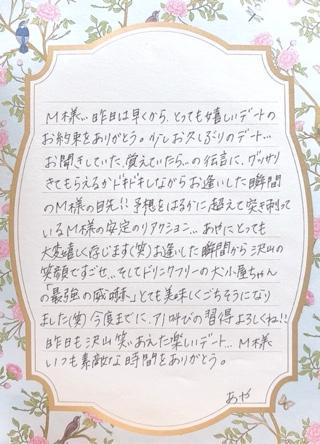 M様… 昨日は早くから、とっても嬉しいデートの
お約束をありがとう。少しお久しぶりのデート…
お聞きしていた、覚えていたら…の伝言に、グッサリ
きてもらえるかドキドキしながらお逢いした瞬間
のM様の目先!! 予想をはるかに超えて突き刺って
いるM様の安定のリアクション… あやにとっても
大変嬉しく存じます(笑)お逢いした瞬間から沢山の
笑顔ですごせ…そしてドリンクフリーの犬小屋ちゃん
「最強の　　」とても美味しくごちそうになり
ました(笑) 今度までに、アノ叫びの習得よろしくね!!
昨日も沢山笑いあえた楽しいデート… M様
いつも素敵な時間をありがとう。
あや